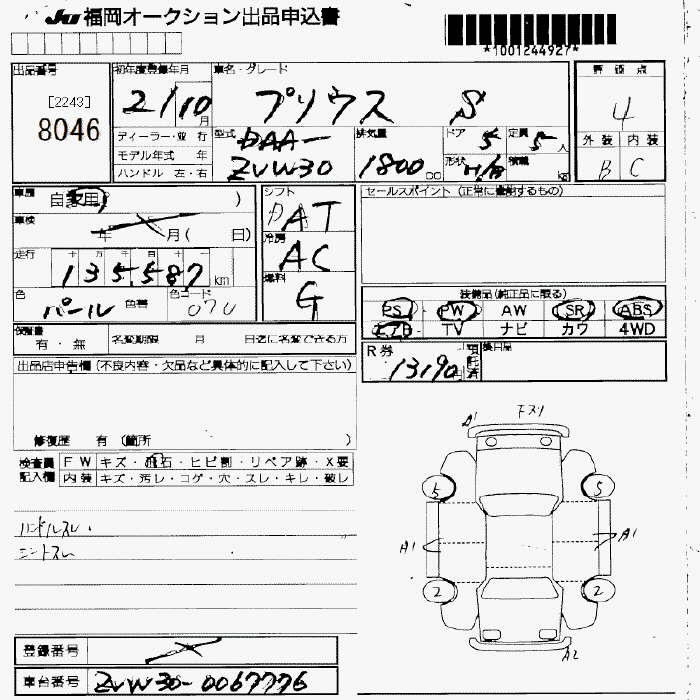 JU 福岡オークション出品申込書
*1001244927*
出品番号
[2243]
8046
初年度登録年月
21/10月
車名・グレード
プリウス S
評価点
4
外装 内装
B C
ディーラー・並行
モデル年式 年
ハンドル 左・右
型式
DAA-
ZVW30
排気量
1800 cc
ドア 5
定員 5人
形状 H/B
積載 kg
車歴
自家用 )
車検
年 月( 日)
走行
十 万 千 百 十 一
135,587 km
色
パール 色替
色コード
070
シフト
AT
冷房
AC
燃料
G
セールスポイント (正常に機能するもの)
装備品(純正品に限る)
PS PW AW SR ABS
エアB TV ナビ カワ 4WD
保証書
有・無
名変期限 月 日迄に名変できる方
R券
13190円
預託済
後日品
出品店申告欄 (不良内容・欠品など具体的に記入して下さい)
修復歴 有 (箇所 )
検査員記入欄
FW キズ・飛石・ヒビ割・リペア跡・X要
内装 キズ・汚レ・コゲ・穴・スレ・キレ・破レ
ハンドルスレ
A1 下スリ
5 5
A1 A1
2 2
A2
登録番号
車台番号
ZVW30-0067776